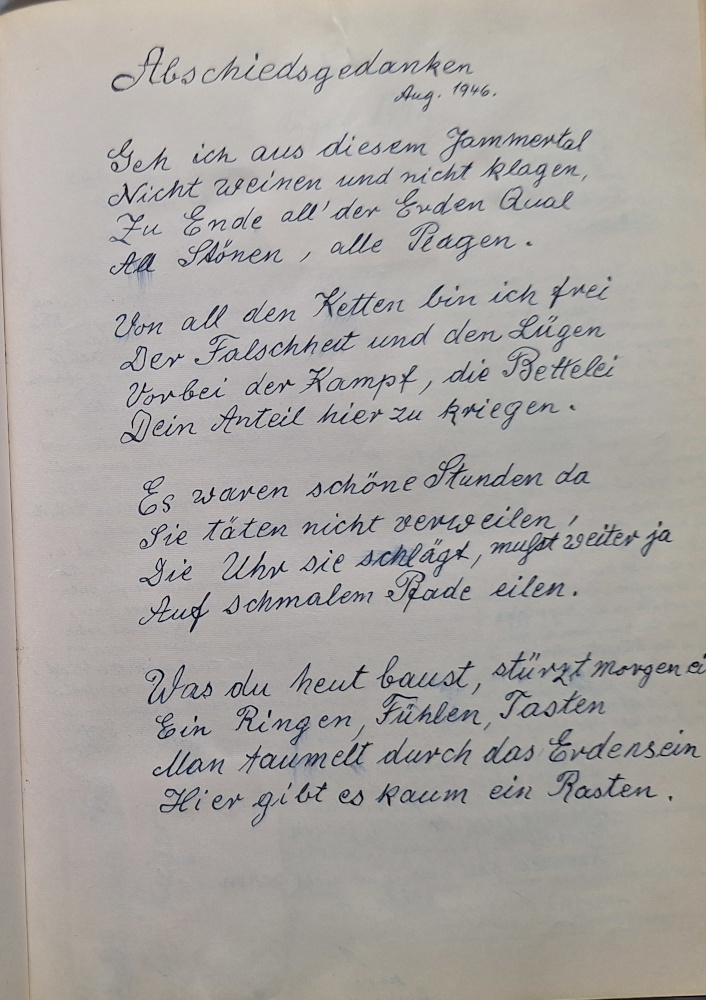 Abschiedsgedanken
Aug. 1946.
Geh ich aus diesem Jammertal
Nicht weinen und nicht klagen,
Zu Ende all' der Erden Qual
All Stönen, alle Plagen.
Von all den Ketten bin ich frei
Der Falschheit und den Lügen
Vorbei der Kampf, die Bettelei
Dein Anteil hier zu kriegen.
Es waren schöne Stunden da
Sie täten nicht verweilen,
Die Uhr sie schlägt, mußt weiter ja
Auf schmalem Pfade eilen.
Was du heut baust, stürzt morgen ei
Ein Ringen, Fühlen, Tasten
Man taumelt durch das Erdensein
Hier gibt es kaum ein Rasten.